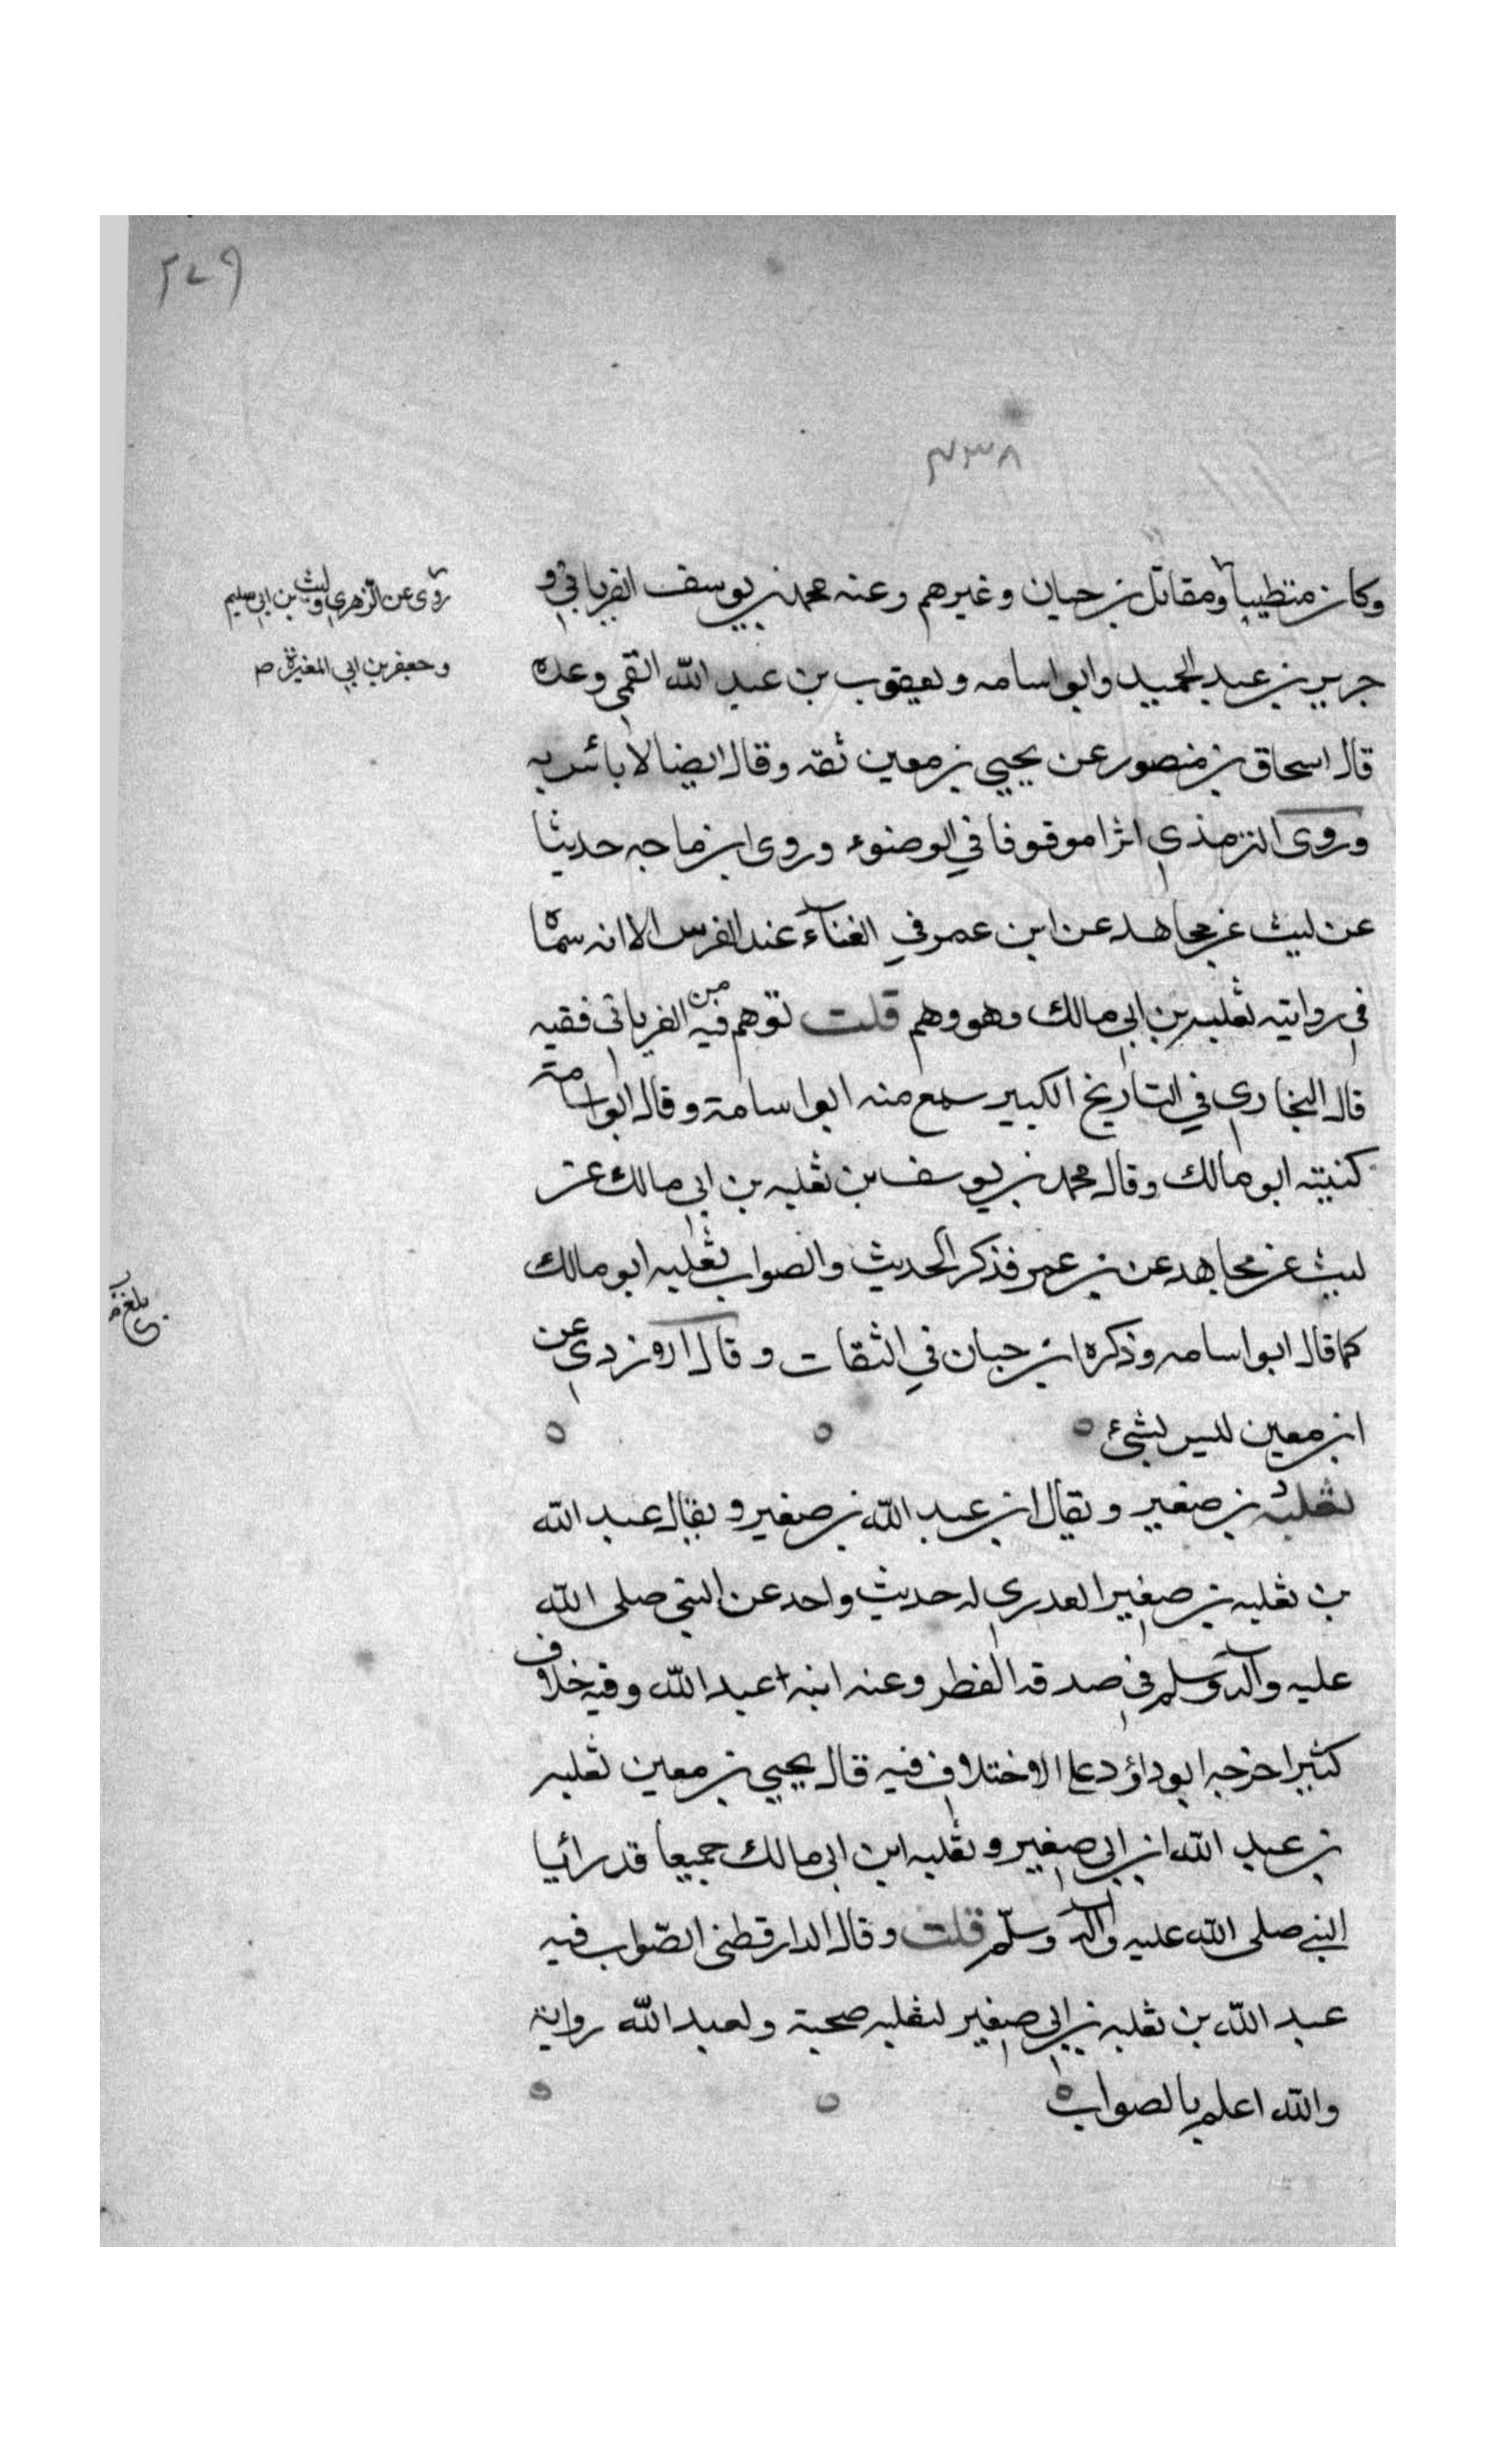 ٢٧٩
٤٣٨
وكان متطيبا ومقاتل بن حيان وغيرهم وعنه محمد بن يوسف الفريابي و
روى عن الزهري وليث بن ابي سليم
وجعفر بن ابي المغيرة ص
جرير بن عبد الحميد وابو اسامه ويعقوب بن عبد الله القمى وعده
قال اسحاق بن منصور عن يحيى بن معين ثقه وقال ايضا لا بائس به
وروى الترمذي اثرا موقوفا في الوضوء وروى ابن ماجه حديثا
عن ليث عن مجاهد عن ابن عمر في الغناء عند الفرس الا انه سماه
في روايته ثعلبه بن ابي مالك وهو وهم قلت توهم فيه من الفريابي فقيه
قال البخاري في التاريخ الكبير سمع منه ابو اسامة وقال ابو اسامة
كنيته ابو مالك وقال محمد بن يوسف بن ثعلبه بن ابي مالك عن
ليث عن مجاهد عن بن عمر فذكر الحديث والصواب ثعلبه ابو مالك
كما قال ابو اسامه وذكره ابن حبان في الثقات وقال الازدي عن
ابن معين ليس بشئ
ثعلبة بن صغير ويقال ابن عبد الله بن صغير ويقال عبد الله
بن ثعلبه بن صغير العدري له حديث واحد عن النبي صلى الله
عليه وآله وسلم في صدقه الفطر وعنه ابنه عبد الله وفيه خلاف
كثير اخرجه ابو داؤد على الاختلاف فيه قال يحيى بن معين ثعلبه
بن عبد الله ابن ابي صغير وثعلبه ابن ابي مالك جميعا قد رائيا
النبي صلى الله عليه وآله وسلم قلت وقال الدارقطني الصواب فيه
عبد الله بن ثعلبه بن ابي صغير لثعلبه صحبة ولعبد الله رواية
والله اعلم بالصواب